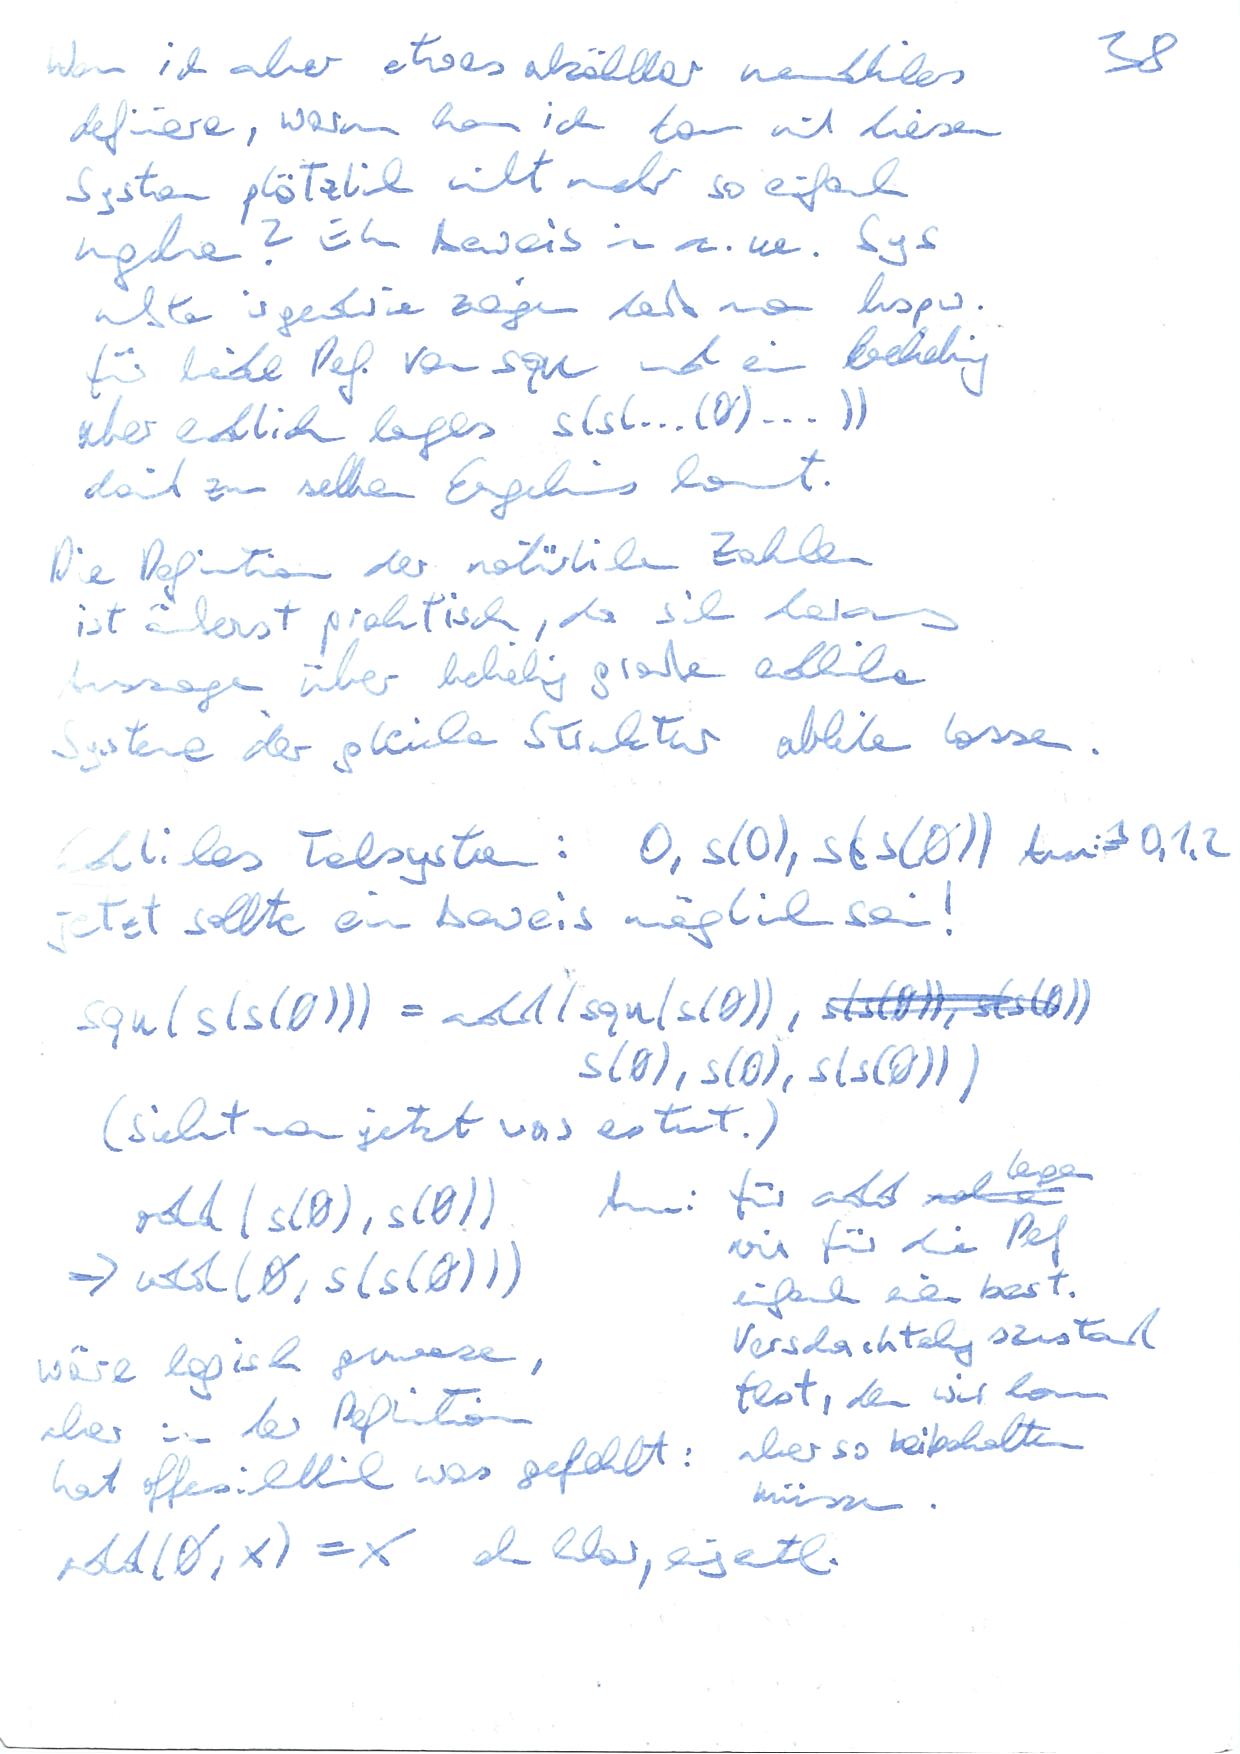 38
Wenn ich aber etwas abzählbar unendliches
definiere, warum kann ich dann mit diesem
System plötzlich nicht mehr so einfach
umgehen? Ein Beweis in m. Sys
müsste irgendwie zeigen dass man bspw.
für beide Def. von squ und ein beliebig
aber endlich langes s(s(...(0)...))
damit zum selben Ergebnis kommt.
Die Definition der natürlichen Zahlen
ist äußerst praktisch, da sich daraus
Aussagen über beliebig große endliche
Systeme der gleichen Struktur ableiten lassen.
Endliches Teilsystem: 0, s(0), s(s(0)) Anm: 0,1,2
jetzt sollte ein Beweis möglich sein!
squ(s(s(0))) = add(squ(s(0)), s(s(0)), s(s(0))
s(0), s(0), s(s(0)))
(Sieht man jetzt was es tut.)
add(s(0), s(0))
=> add(0, s(s(0)))
wäre logisch gewesen,
aber in der Definition
hat offensichtlich was gefehlt:
add(0, x) = x eh klar, eigentl.
Anm: für add legen
wir für die Def
einfach einen best.
Verschachtelungszustand
fest, den wir dann
aber so beibehalten
müssen.